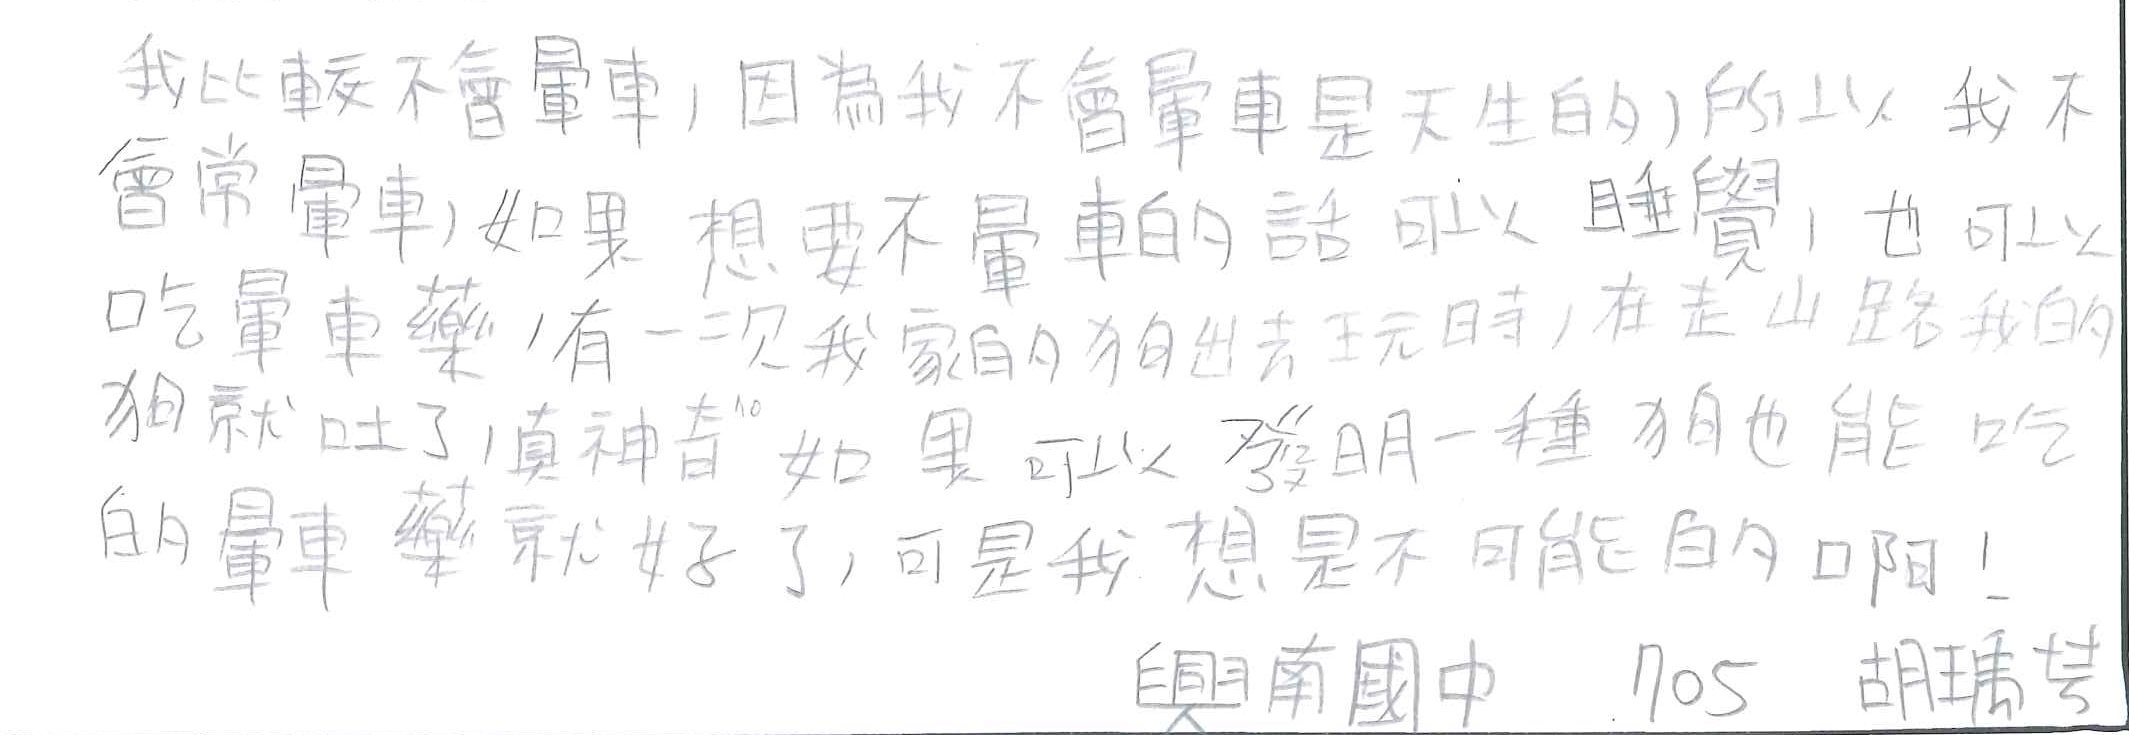 我比較不會暈車，因為我不會暈車是天生的，所以我不
會常暈車，如果想要不暈車的話可以睡覺，也可以
吃暈車藥，有一次我家的狗出去玩時，在走山路我的
狗就吐了，真神奇。如果可以發明一種狗也能吃
的暈車藥就好了，可是我想是不可能的啊！
興南國中 705 胡瑀芸